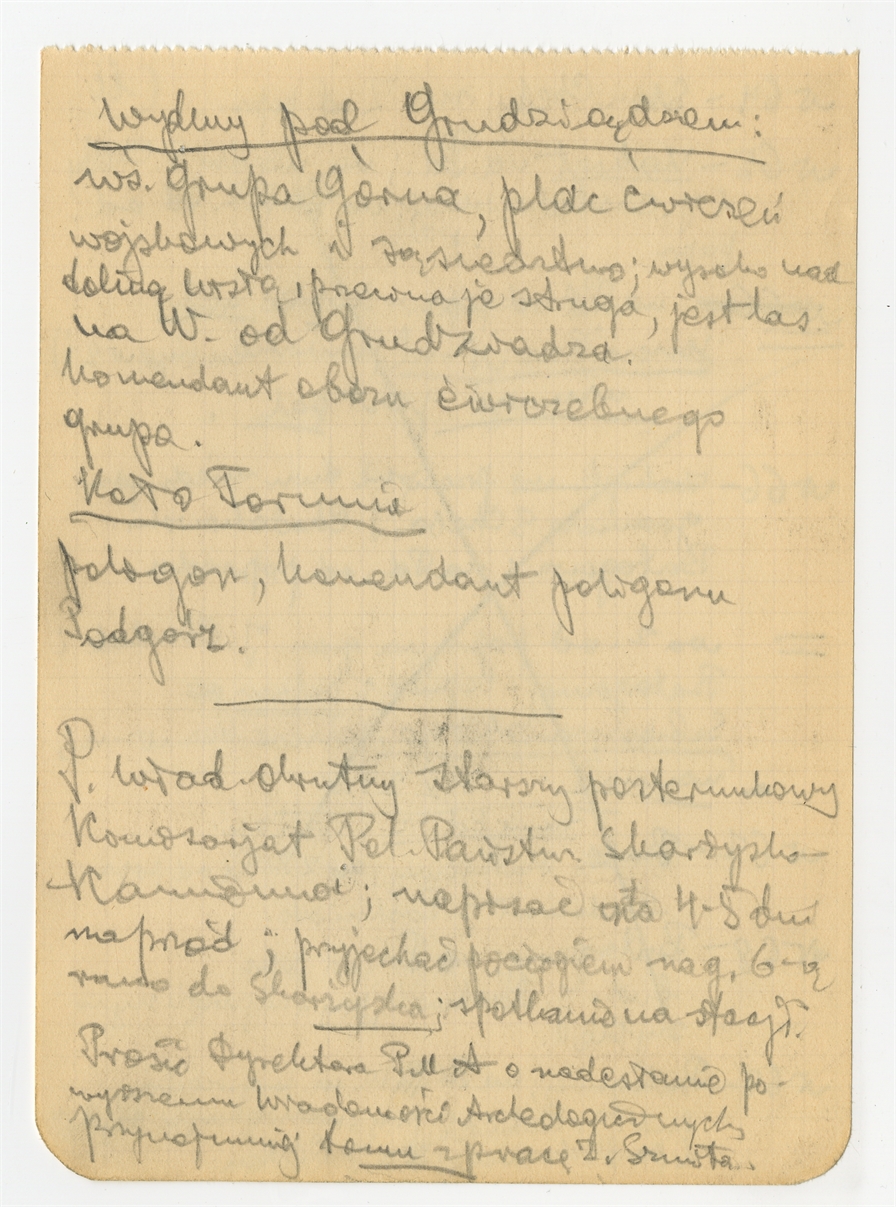 Wydmy pod Grudziądzem:
wś. Grupa Górna, plac ćwiczeń
wojskowych i sąsiedztwo; wysoko nad
doliną Wisłą, je struga, jest las
na W. od Grudziądza.
Komendant obozu ćwiczebnego
Grupa.
Koło Torunia
poligon, komendant poligonu
Podgórz.
P. Wład. Okrutny starszy posterunkowy
Komisarjat Pol. Państw. Skarżysko
Kamienna; napisać na 4-5 dni
naprzód; przyjechać pociągiem na g. 6-ą
rano do Skarżyska; spotkanie na stacji.
Prosić Dyrektora PMA o nadesłanie po-
wyższemu Wiadomości Archeologicznych
przynajmniej tomu z pracą Z. Szmita.